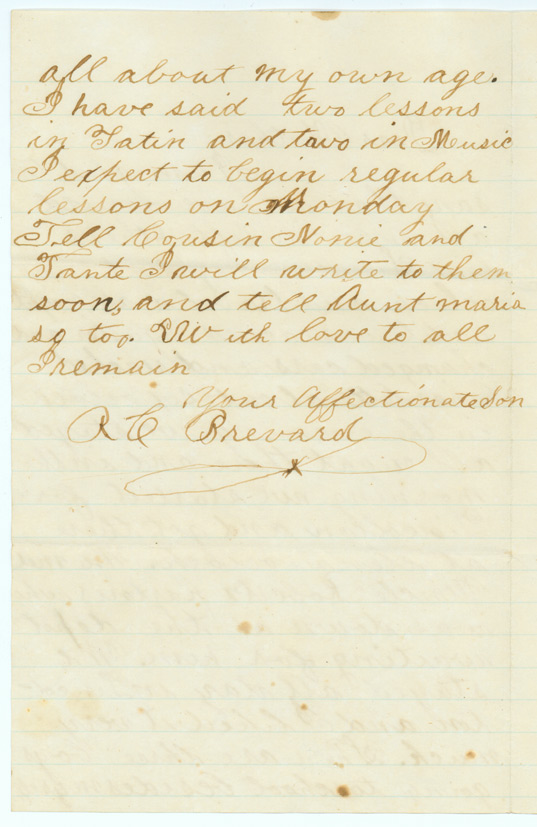 all about my own age.
I have said two lessons
in Latin and two in Music
I expect to begin regular
lessons on Monday
Tell Cousin Nonie and
Tante I will write to them
soon, and tell Aunt maria
so too. With love to all
I remain
Your Affectionate Son
R C Brevard